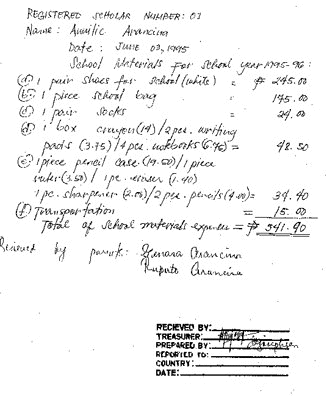 REGISTERED SCHOLAR NUMBER: 03
Name: Amilie Arancina
Date: JUNE 03, 1995
School Materials for school year 1995-96:
(a) 1 pair shoes for school (white) = ₱ 245.00
(b) 1 piece school bag = 175.00
(c) 1 pair socks = 24.00
(d) 1 box crayon (14) / 2 pcs. writing
pads (3.75) / 4 pcs. notebooks (6.75) = 48.50
(e) 1 piece pencil case (19.50) / 1 piece
ruler (3.50) / 1 pc. eraser (1.40)
1 pc. sharpener (2.00) / 2 pcs. pencils (4.00) = 34.40
(f) Transportation = 15.00
Total of school materials expense = ₱ 541.90
Recieved by parents: Genara Arancina
Ruperto Arancina
RECIEVED BY:
TREASURER:
PREPARED BY:
REPORTED TO:
COUNTRY:
DATE: